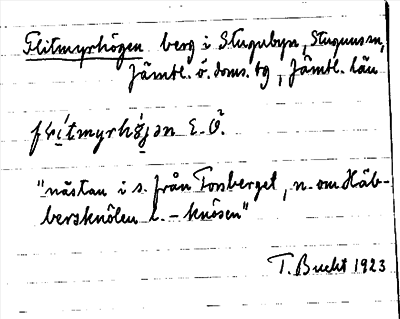 Flitmyrhögen berg i Stugubyn, Stuguns sn,
Jämtl. ö. doms. tg, Jämtl. län
flitmyrhöjən E. O.
"nästan i s. från Torsberget, n. om Häb-
bersknölen l. - knösen"
T. Bucht 1923